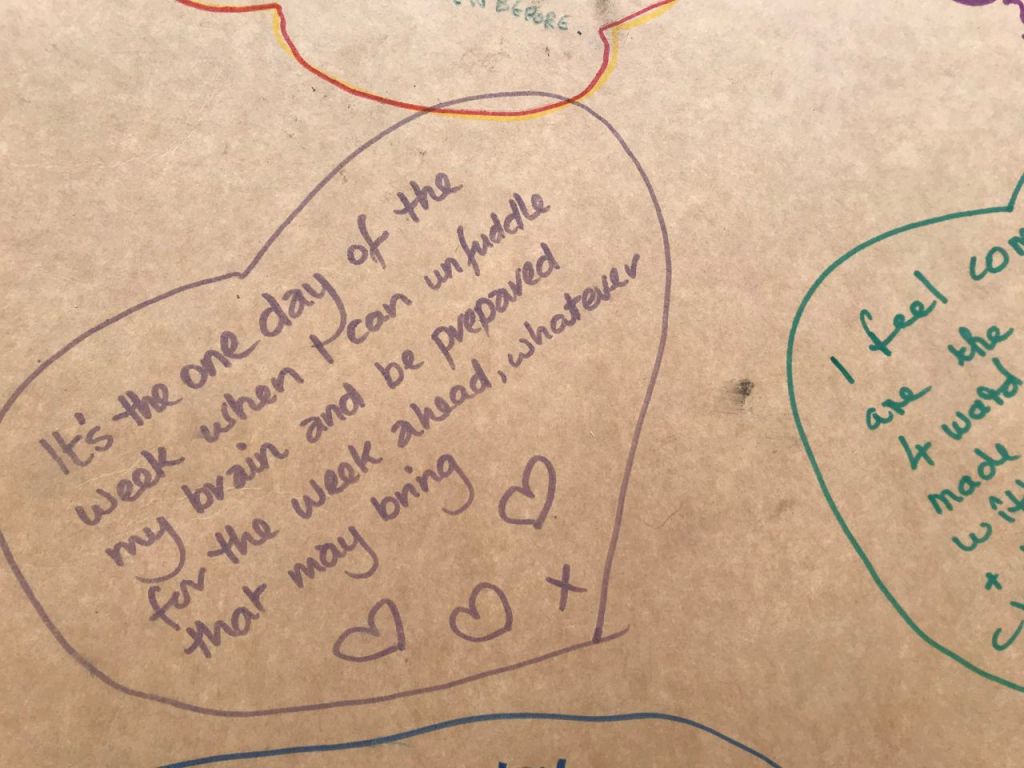 BEFORE.
It's the one day of the
week when I can unfuddle
my brain and be prepared
for the week ahead, whatever
that may bring
x
I feel
are the
4
made
+